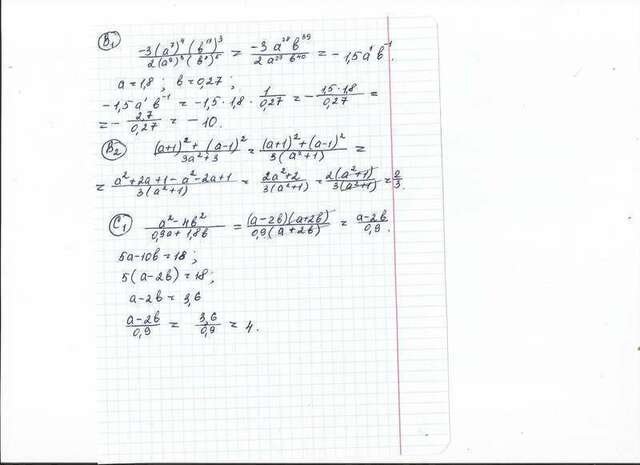 B₁
-3(a⁷)⁴(b¹³)³ / 2(a⁹)³(b⁸)⁵ = -3a²⁸b³⁹ / 2a²⁷b⁴⁰ = -1,5a¹b⁻¹.
a=1,8; b=0,27;
-1,5a¹b⁻¹ = -1,5·1,8·1/0,27 = -1,5·1,8/0,27 =
= -2,7/0,27 = -10.
B₂
(a+1)²+(a-1)² / 3a²+3 = (a+1)²+(a-1)² / 3(a²+1) =
= a²+2a+1-a²-2a+1 / 3(a²+1) = 2a²+2 / 3(a²+1) = 2(a²+1) / 3(a²+1) = 2/3.
C₁
a²-4b² / 0,9a+1,8b = (a-2b)(a+2b) / 0,9(a+2b) = a-2b / 0,9.
5a-10b=18;
5(a-2b)=18;
a-2b=3,6
a-2b / 0,9 = 3,6 / 0,9 = 4.